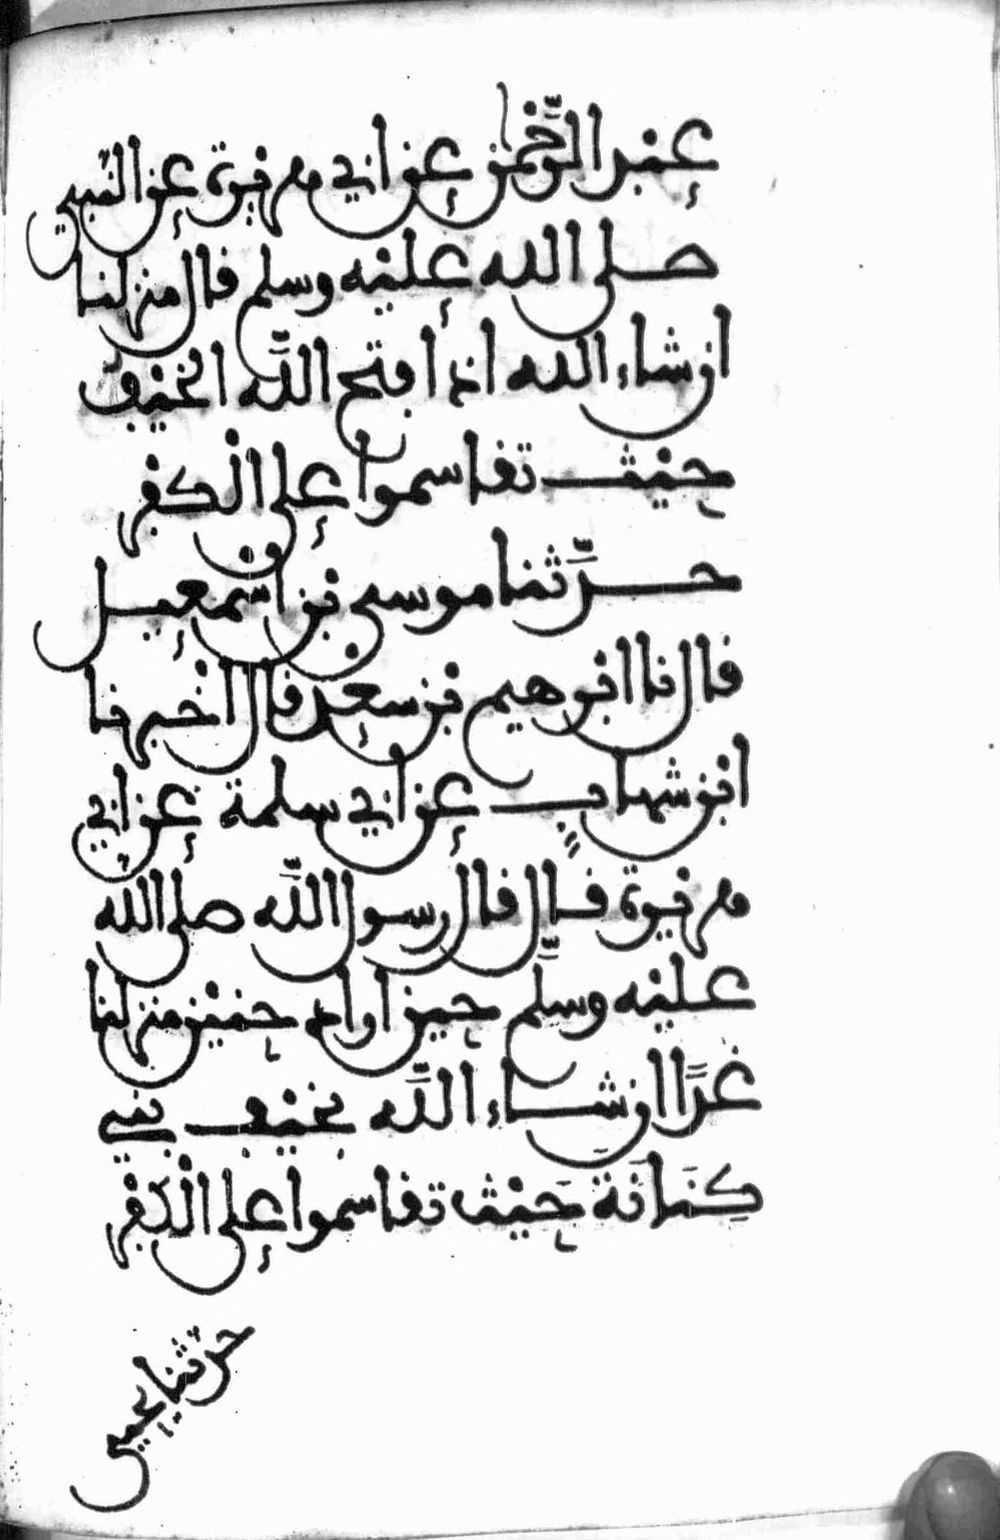 عبد الرَّحْمٰن عن ابي هريرة عن النبي
صلى الله عليه وسلم قال منزلنا
ان شاء الله اذا فتح اللَّه الخيف
حيث تقاسموا على الكفر
حدَّثنا موسى بن اسْمعيل
قال نا ابرهيم بن سعْد قال اخْبرنا
ابن شهاب عن ابي سلمة عن ابي
هريرة قال قال رسول اللَّه صلى الله
عليه وسلَّم حين اراد حنيْن منزلنا
غدًا ان شاء اللَّه بخيف بني
كِنَانَة حَيْث تقاسموا على الكفْر
حدثنا عيسى